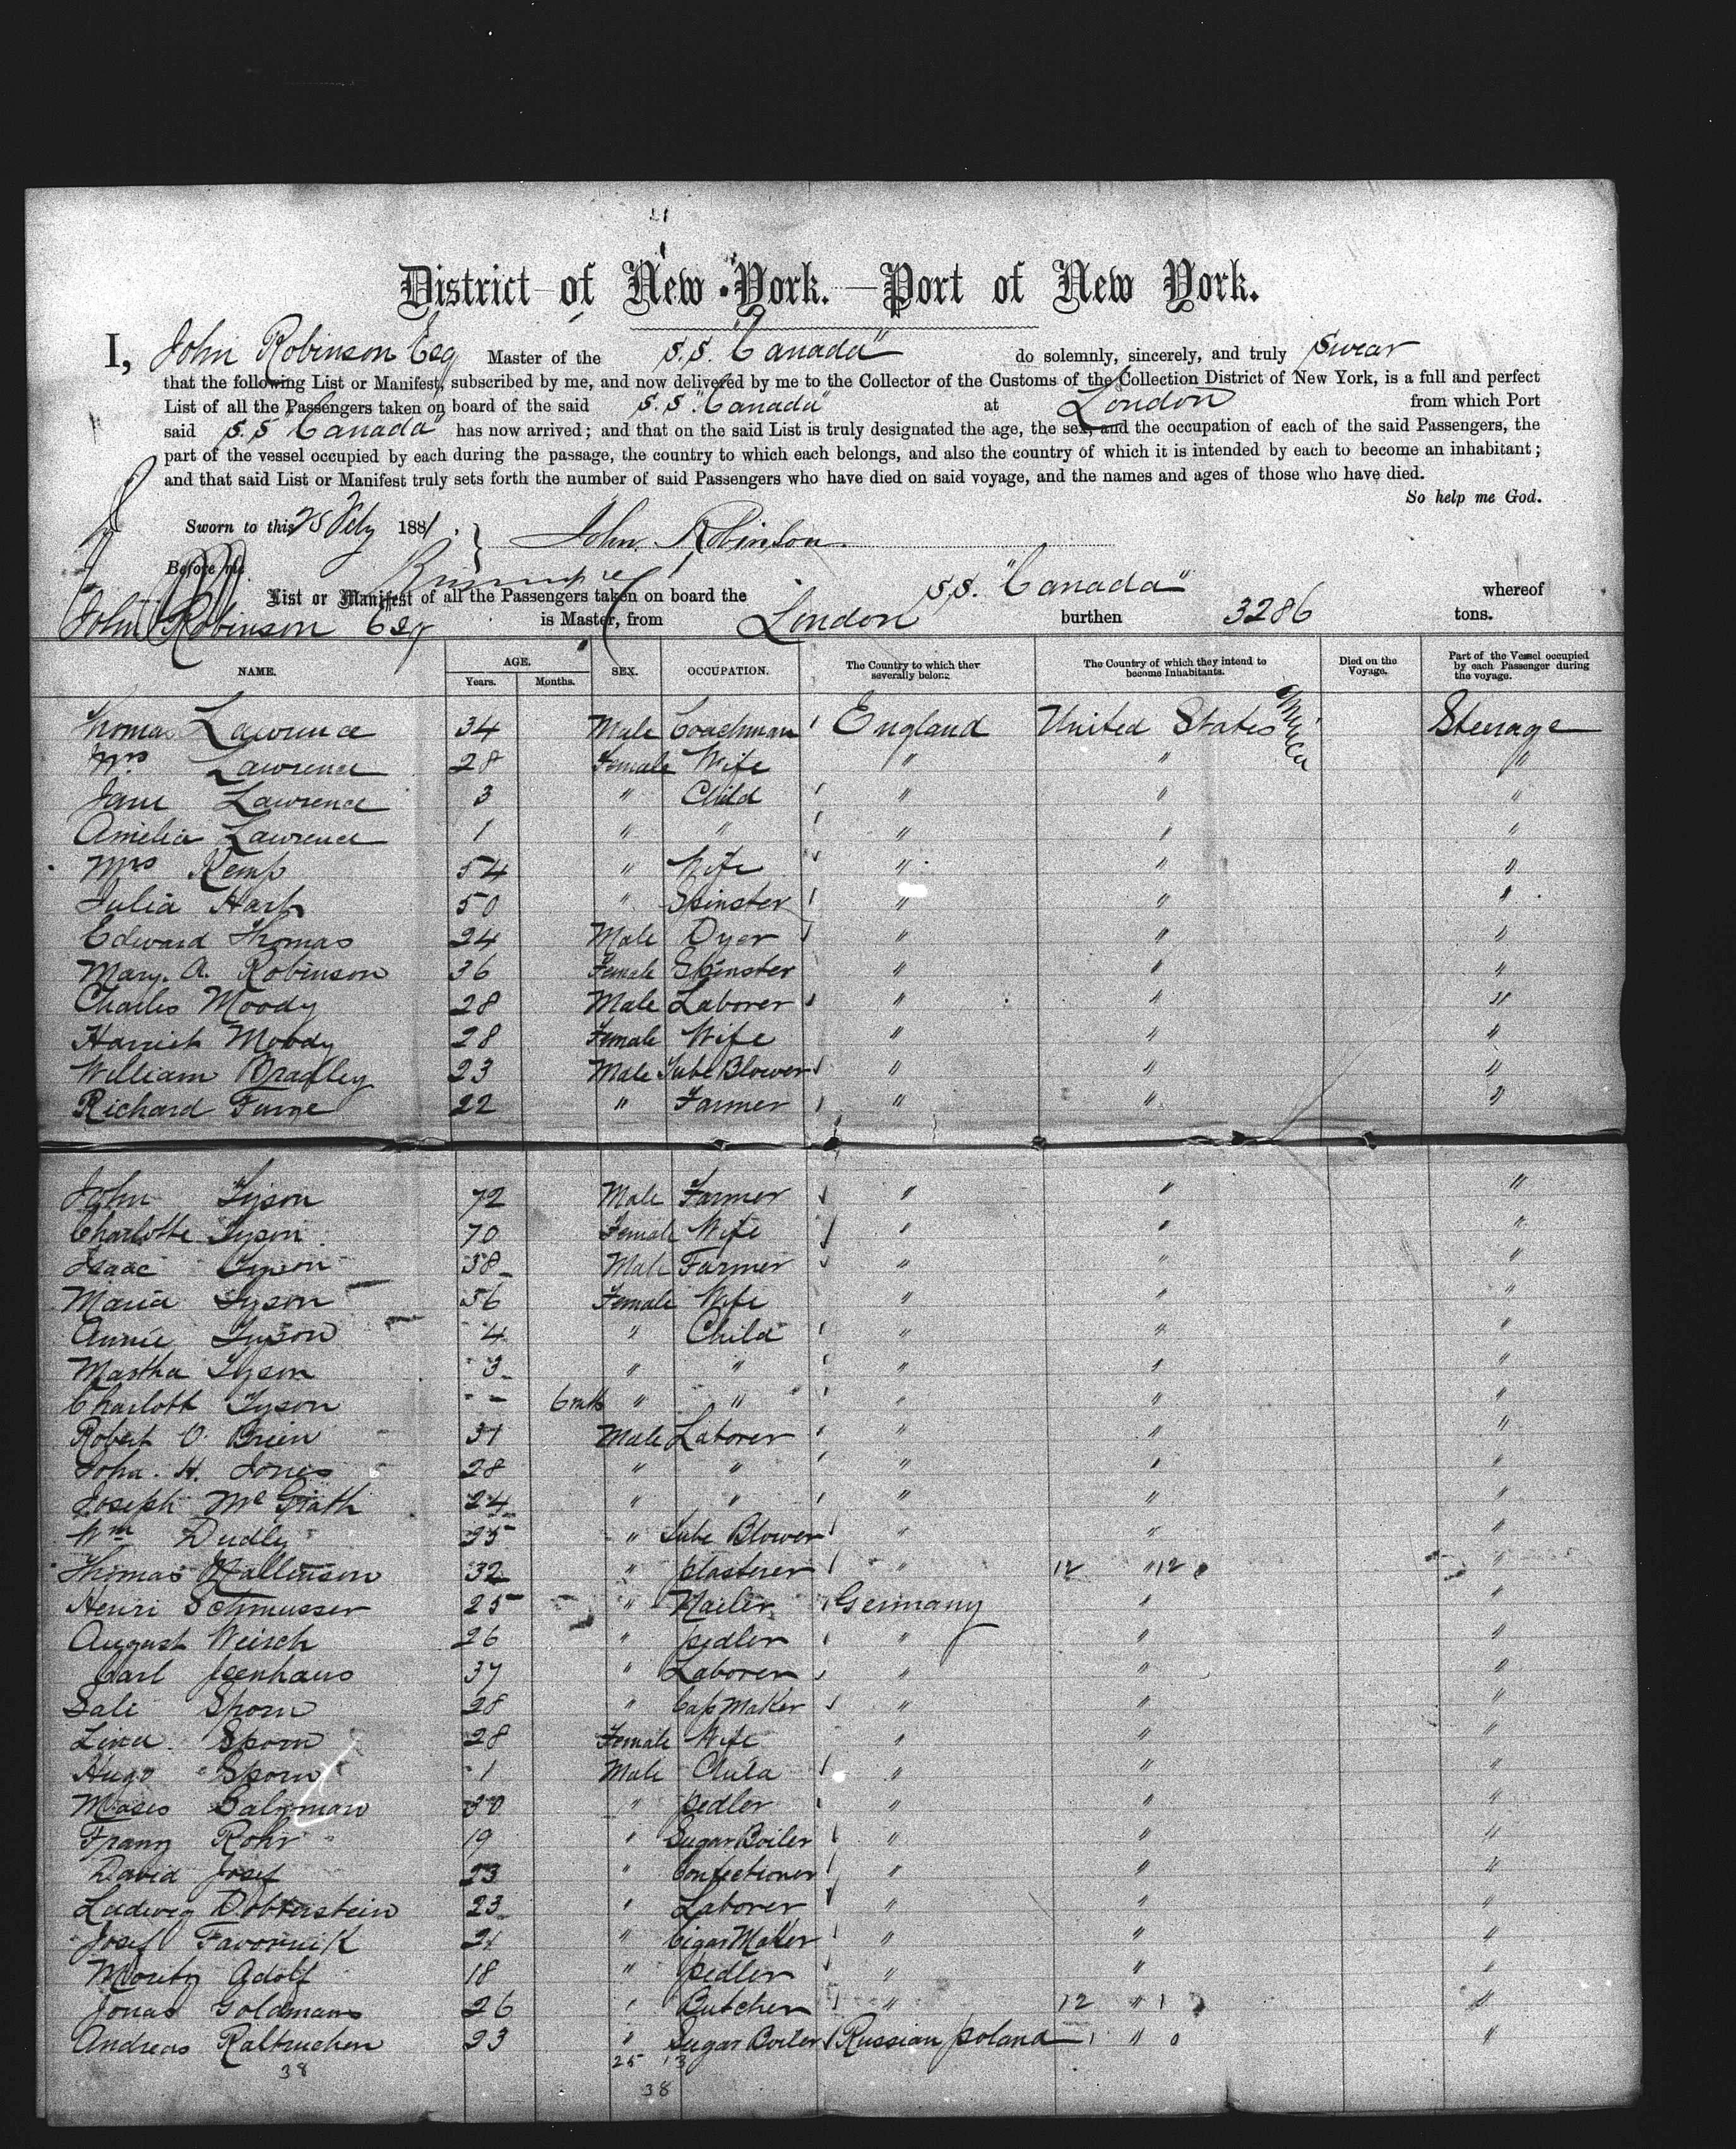 District of New York.—Port of New York.
I, John Robinson Esq Master of the S.S. "Canada" do solemnly, sincerely, and truly Swear
that the following List or Manifest, subscribed by me, and now delivered by me to the Collector of the Customs of the Collection District of New York, is a full and perfect
List of all the Passengers taken on board of the said S.S. "Canada" at London from which Port
said S.S "Canada" has now arrived; and that on the said List is truly designated the age, the sex, and the occupation of each of the said Passengers, the
part of the vessel occupied by each during the passage, the country to which each belongs, and also the country of which it is intended by each to become an inhabitant;
and that said List or Manifest truly sets forth the number of said Passengers who have died on said voyage, and the names and ages of those who have died.
So help me God.
Sworn to this 25 1881. John Robinson
Before me
List or Manifest of all the Passengers taken on board the S.S. "Canada" whereof
John Robinson Esq is Master, from London burthen 3286 tons.
NAME. AGE. Years. Months. SEX. OCCUPATION. The Country to which they severally belong. The Country of which they intend to become Inhabitants. Died on the Voyage. Part of the Vessel occupied by each Passenger during the voyage.
Thomas Lawrence 34 Male Coachman England United States America Steerage
Mrs Lawrence 28 Female Wife " " "
Jane Lawrence 3 " Child " " "
Amelia Lawrence 1 " " " " "
Mrs Kemp 54 " Wife " " "
Julia Harp 50 " Spinster " " "
Edward Thomas 24 Male Dyer " " "
Mary. A. Robinson 36 Female Spinster " " "
Charles Moody 28 Male Laborer " " "
Harriet Moody 28 Female Wife " " "
William Bradley 23 Male Tube Blower " " "
Richard Furge 22 " Farmer " " "
John Tyson 72 Male Farmer " " "
Charlotte Tyson 70 Female Wife " " "
Isaac Tyson 38 Male Farmer " " "
Maria Tyson 36 Female Wife " " "
Annie Tyson 4 " Child " " "
Martha Tyson 3 " " " " "
Charlott Tyson - - 6 mths " " " " "
Robert O. Brien 31 Male Laborer " " "
John. H. Jones 28 " " " " "
Joseph McGrath 24 " " " " "
Wm Dudley 25 " Tube Blower " " "
Thomas Mallinson 32 " plasterer " 12 " 12 "
Henri Schmusser 25 " Nailer Germany " "
August Weirch 26 " pedler " " "
Carl Isenhaus 37 " Laborer " " "
Sali Sporn 28 " Cap Maker " " "
Lina Sporn 28 Female Wife " " "
Hugo Sporn 1 Male Child " " "
Moses Salzman 30 " pedler " " "
Franz Rohr 19 " Sugar Boiler " " "
David Josef 23 " Confectioner " " "
Ludwig Dobberstein 23 " Laborer " " "
Josef Favornik 24 " Cigar Maker " " "
Moritz Adolf 18 " pedler " " "
Jonas Goldmann 26 " Butcher " 12 " 1 "
Andreas Raltruchen 23 " Sugar Boiler Russian poland " "
38 25 13
38